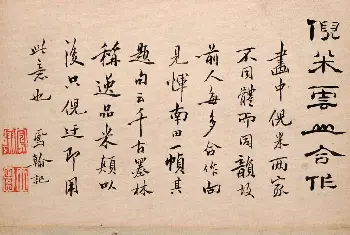 倪米雲山合作
畫中倪米兩家
不同體而同韻故
前人每多合作向
見惲南田一幀其
題句云千古墨林
稱逸品米顛以
後只倪迂即用
此意也 翰記